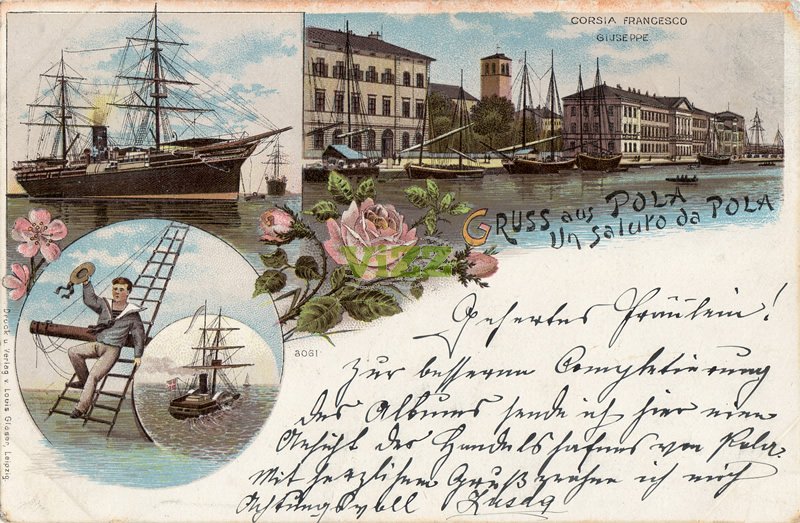 CORSIA FRANCESCO
GIUSEPPE
GRUSS aus POLA
Un saluto da POLA
VIZZ
3061
Druck u. Verlag v. Louis Glaser, Leipzig.
Geehrtes Fräulein!
Zur besseren Completierung
des Albums sende ich hier eine
Ansicht des Handelshafens von Pola.
Mit herzlichem Gruß zeichne ich mich
Achtungsvoll